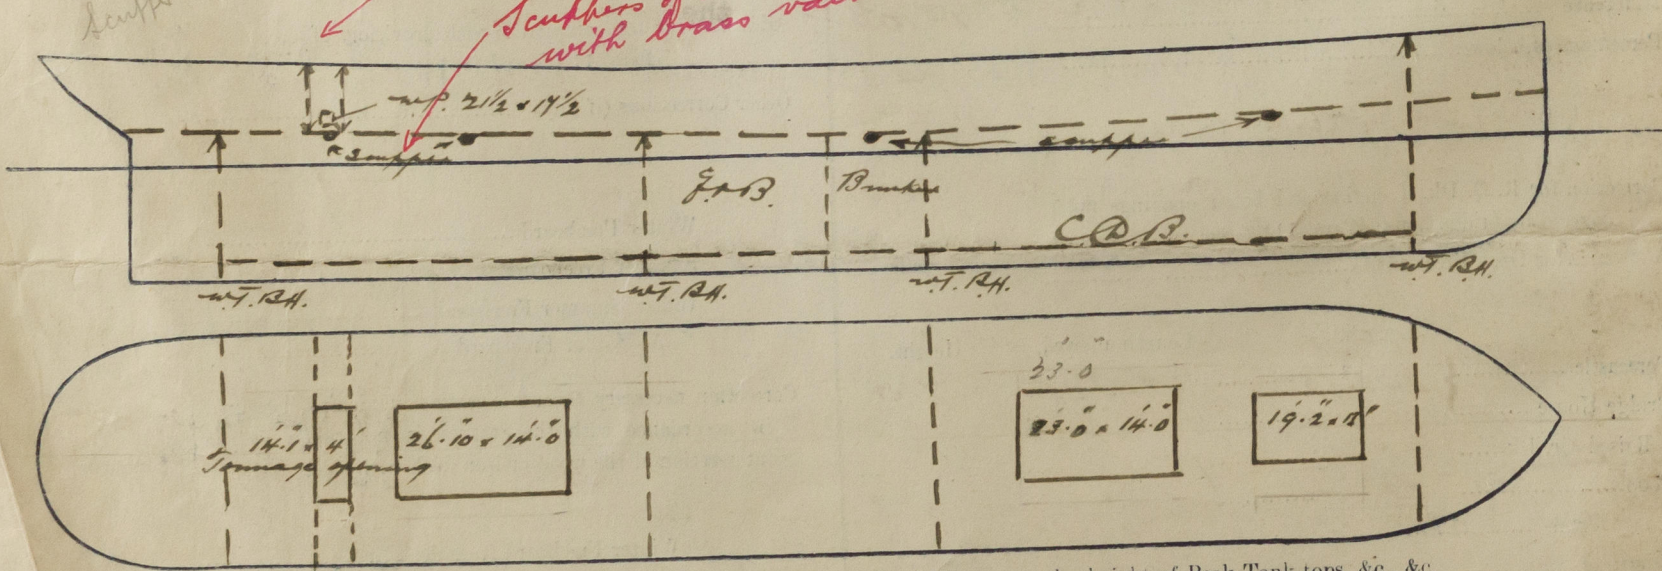 Scupper
Scuppers
with brass
W.P. 21½ x 17½
scupper
scupper
E. & B.
Bunker
C.D.B.
W.T. B.H.
W.T. B.H.
W.T. B.H.
W.T. B.H.
23.0
14'.1" x 4'
Tonnage opening
26'.10" x 14'.0"
23'.0" x 14'.0"
19'.2" x 11'
height of Peak Tank tops, &c., &c.